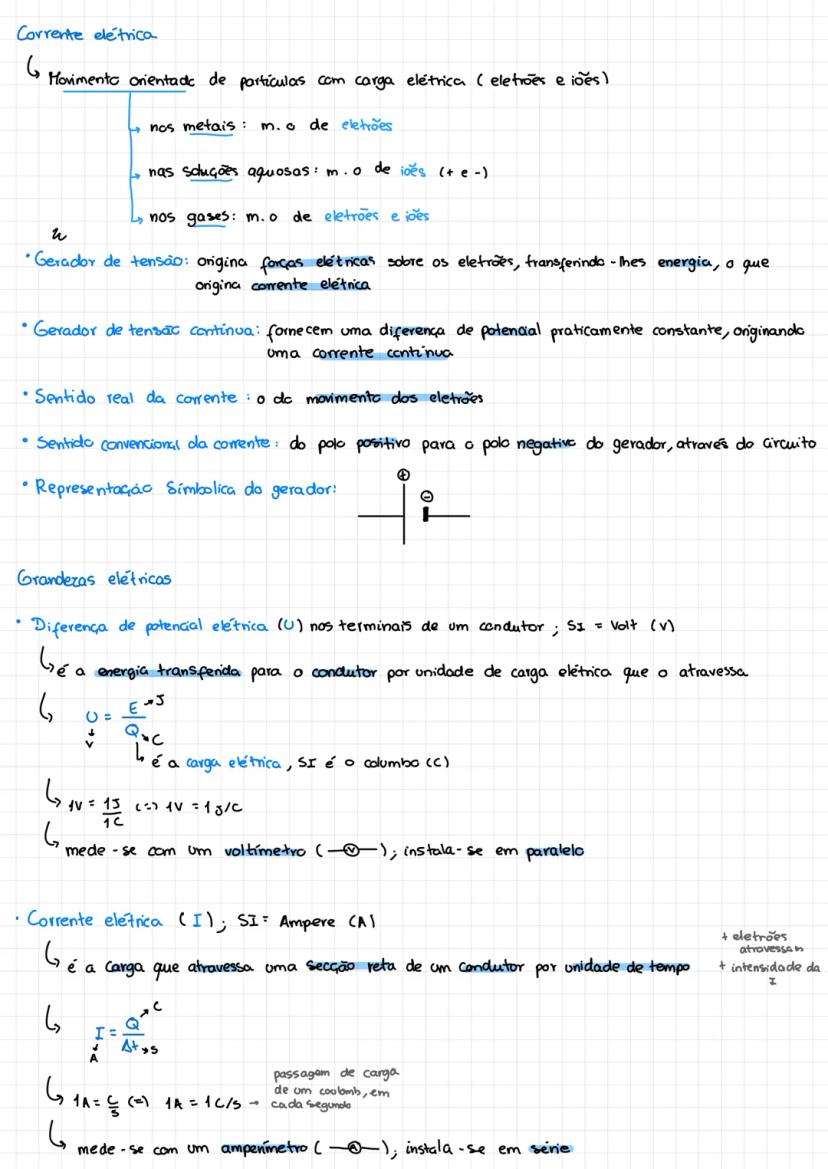 Corrente elétrica
↳ Movimento orientado de partículas com carga elétrica (eletrões e iões)
↳ nos metais: m.o de eletrões
→ nas soluções aquosas: m.o de iões (+ e -)
↳ nos gases: m.o de eletrões e iões
• Gerador de tensão: origina forças elétricas sobre os eletrões, transferindo-lhes energia, o que
origina corrente elétrica
• Gerador de tensão contínua: fornecem uma diferença de potencial praticamente constante, originando
uma corrente contínua
• Sentido real da corrente: o do movimento dos eletrões
• Sentido convencional da corrente: do polo positivo para o polo negativo do gerador, através do circuito
• Representação Símbolica do gerador:
+
-
Grandezas elétricas
• Diferença de potencial elétrica (U) nos terminais de um condutor; SI = Volt (V)
↳ é a energia transferida para o condutor por unidade de carga elétrica que o atravessa
↳ U = E/Q
J
V
C
↳ é a carga elétrica, SI é o columbo (C)
↳ 1V = 1J/1C (=) 1V = 1J/C
↳ mede-se com um voltímetro (—V—); instala-se em paralelo
• Corrente elétrica (I); SI = Ampere (A)
+ eletrões
atravessam
↳ é a carga que atravessa uma secção reta de um condutor por unidade de tempo
+ intensidade da
I
↳ I = Q/Δt
C
A
s
passagem de carga
de um coulomb, em
↳ 1A = C/s (=) 1A = 1C/s → cada segundo
↳ mede-se com um amperímetro (—A—); instala-se em série